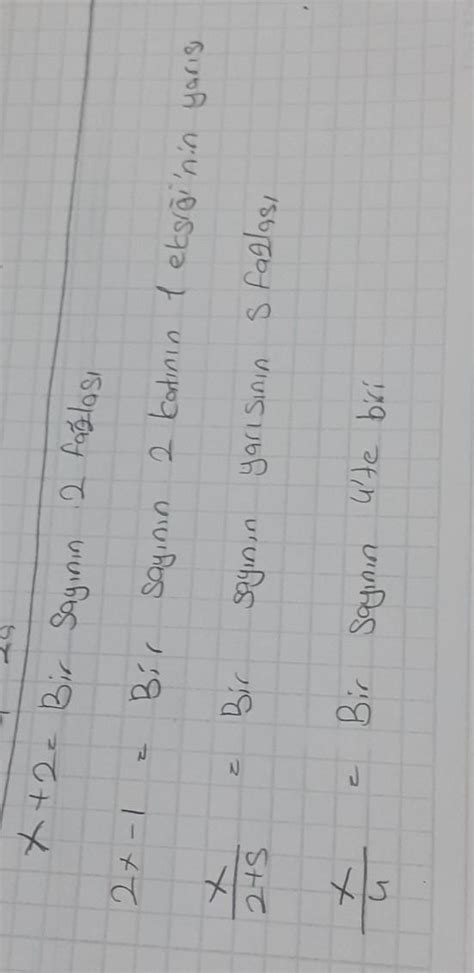 x+2= Bir sayının 2 fazlası
2x-1 = Bir sayının 2 katının 1 eksiği'nin yarıs
x/2+5 = Bir sayının yarısının 5 fazlası
x/4 = Bir sayının 4'te biri